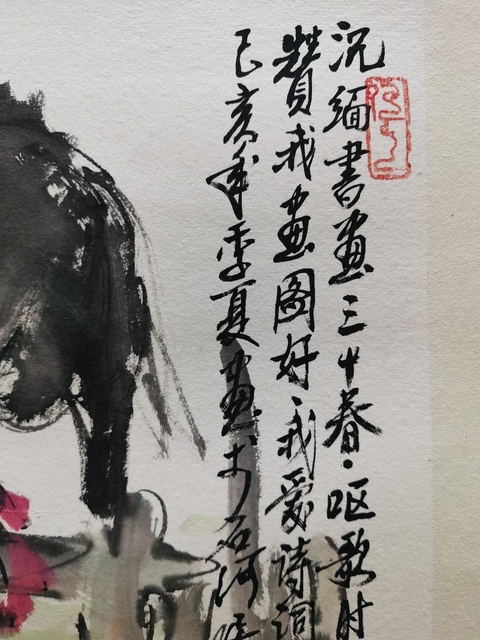 沉缅書畫三十春·呕歌时
赞我畫圖好、我爱诗词
己亥年季夏畫于石河